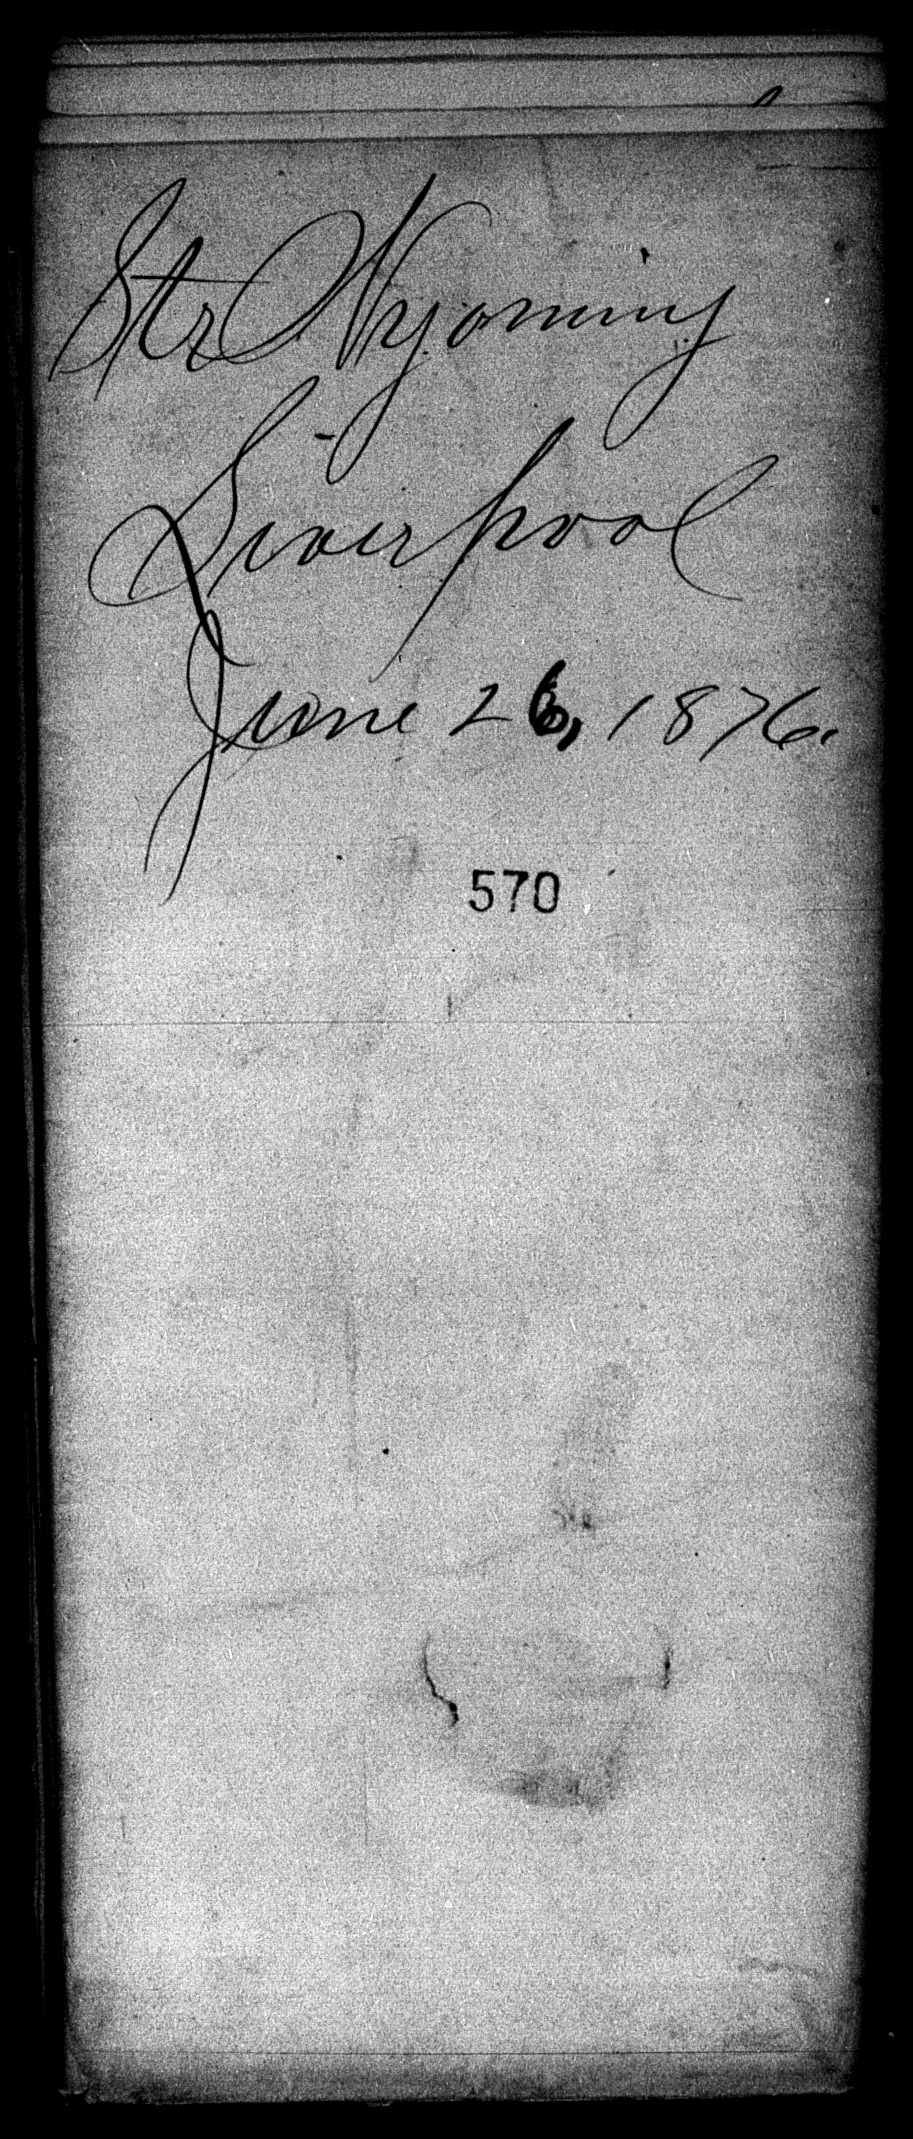 Str Wyoming
Liverpool
June 26, 1876.
570